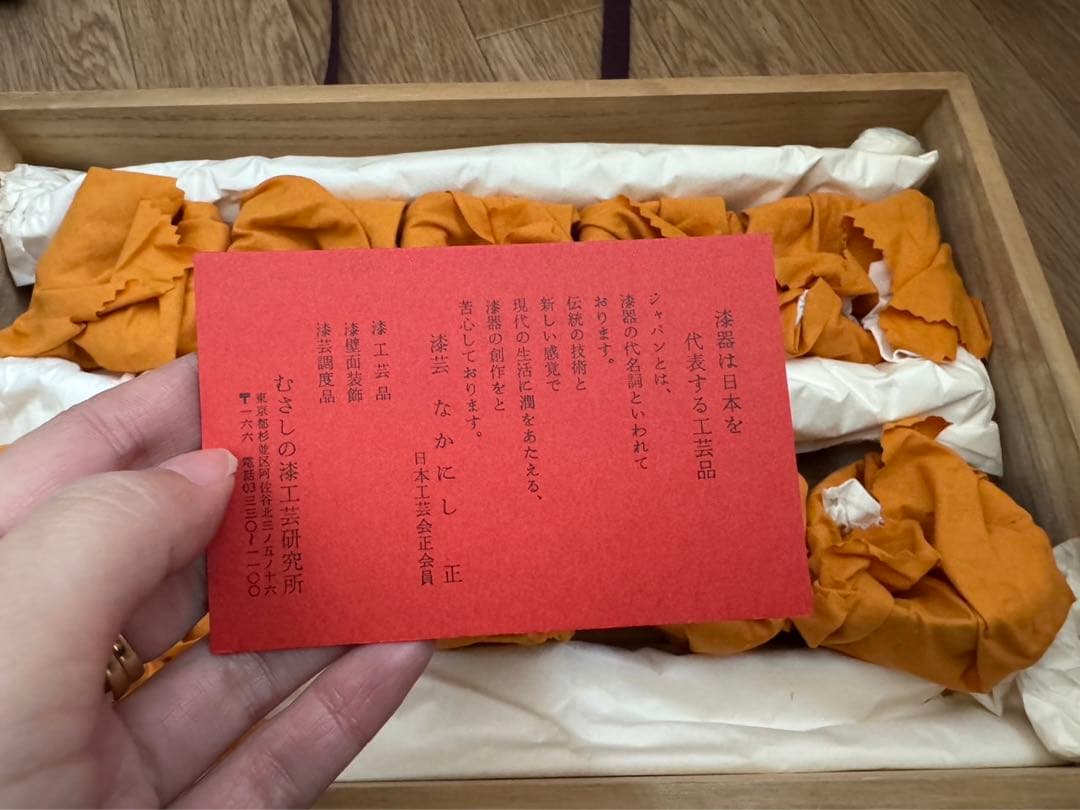 漆器は日本を
代表する工芸品
ジャパンとは、
漆器の代名詞といわれて
おります。
伝統の技術と
新しい感覚で
現代の生活に潤をあたえる、
漆器の創作をと
苦心しております。
漆芸 なかにし 正
日本工芸会正会員
漆工芸品
漆壁面装飾
漆芸調度品
むさしの漆工芸研究所
東京都杉並区阿佐谷北三ノ五ノ十六
〒一六六 電話03三三〇〜一一〇〇